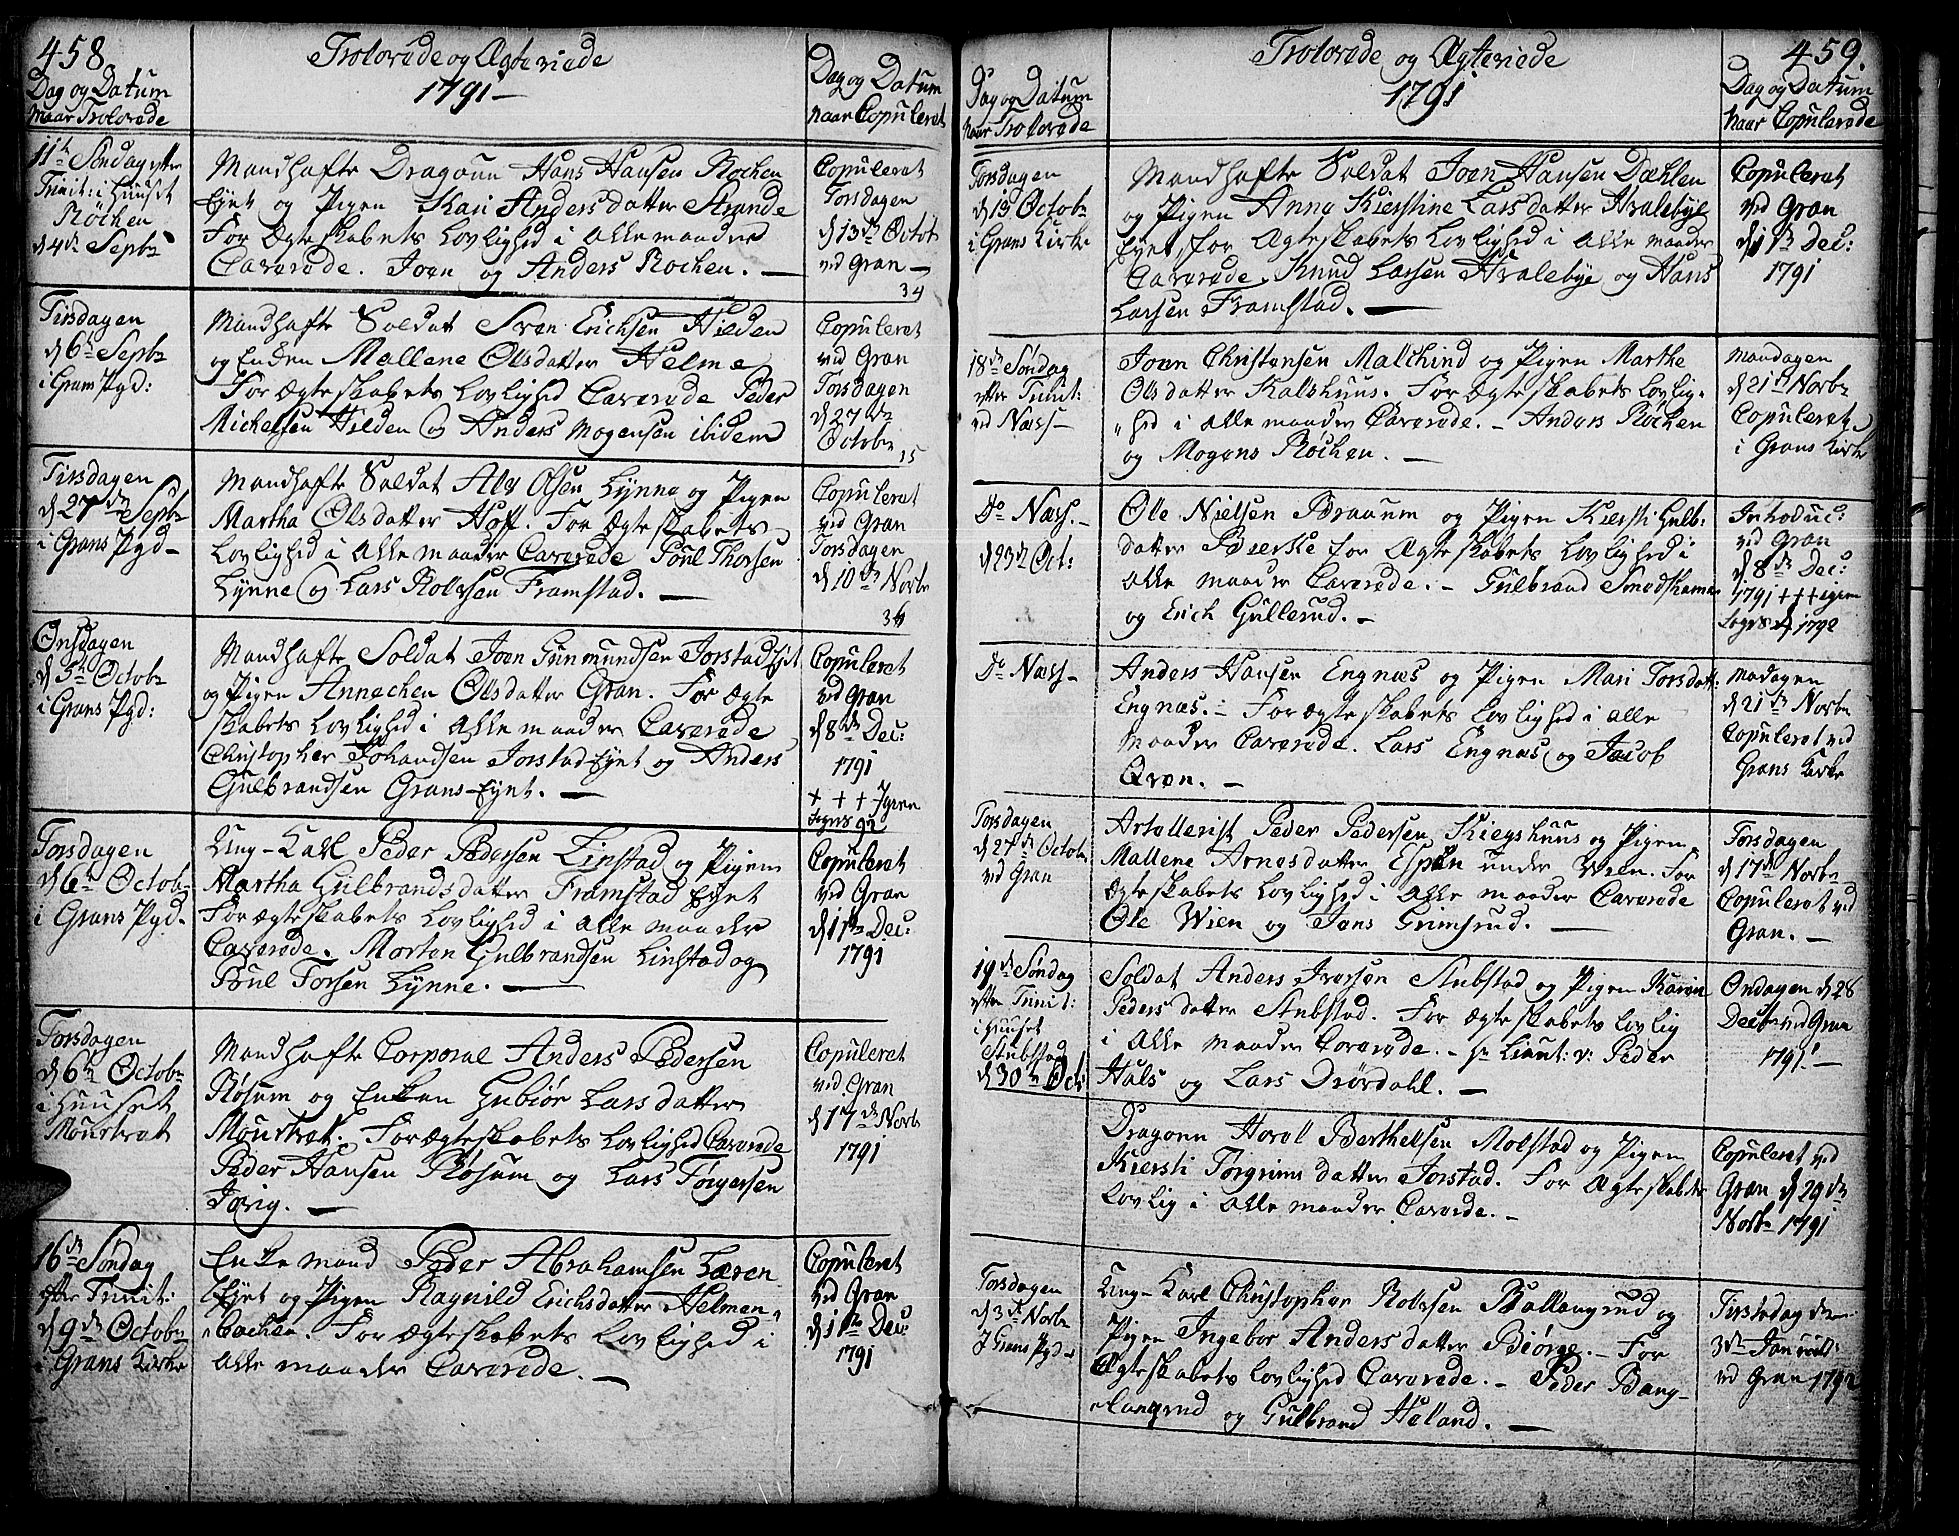 458.
Trolovede og Ægteviede
1791 –
Dag og Datum
naar Trolovede
Dag og Datum
naar Copuleret
11te Søndag efter
Trinit: i Huuset
Røchen
d 4de Septbr
Mandhafte Dragoun Hans Hansen Rochen
Eynt og Pigen Kari Anders datter Strande
For Ægteskabets Lovlighed i alle maader
Caverede. Joen og Anders Rochen. –
Copuleret
Torsdagen
d 13de Octobr
ved Gran –
34
Tirsdagen
d 6te Septbr
i Grans Pgd:
Mandhafte Soldat Sven Erichsen Hilden
og Enken Mallene Olsdatter Helme
For Ægteskabets Lovlighed Caverede Peder
Michelsen Hilden og Anders Mogensen ibidem
Copuleret
ved Gran
Torsdagen
d 27de
Octobr
15
Tirsdagen
d 27de Septbr
i Grans Pgd –
Mandhafte Soldat Alv Olsen Lynne og Pigen
Martha Olsdatter Hoff. For Ægteskabets
Lovlighed i alle maader Caverede Poul Thorsen
Lynne og Lars Rolvsen Framstad. –
Copuleret
ved Gran
Torsdagen
d 10de Novbr
36
Onsdagen
d 5te Octobr
i Grans Pgd:
Mandhafte Soldat Joen Gunmundsen Jorstad Eynt
og Pigen Annechen Olsdatter Gran. For Ægte
skabets Lovlighed i alle maader Caverede
Christopher Johandsen Jorstad Eynt og Anders
Gulbrandsen Grans Eynt. –
Copuleret
ved Gran
d 8de Dec:
1791
+ + + Igien
92
Torsdagen
d 6te Octobr
i Grans Pgd.
Ung-Karl Peder Pedersen Linstad og Pigen
Martha Gulbrandsdatter Framstad Eynt
For Ægteskabets Lovlighed i alle maader
Caverede. Morten Gulbrandsen Linstad og
Poul Torsen Lynne. –
Copuleret
ved Gran
d 1te Dec:
1791
Torsdagen
d 6te Octobr
i Huuset
Mourtvet
Mandhafte Corporal Anders Pedersen
Røsum og Enken Gubiør Larsdatter
Mourtvet. For Ægteskabets Lovlighed Caverede
Peder Hansen Røsum og Lars Torgersen
Jorig. –
Copuleret
ved Gran
d 17de Novbr
1791
16de Søndag
efter Trinit:
d 9de Octobr
i Grans Kirke
Enkemand Peder Abrahamsen Læren
Eynt og Pigen Ragnild Erichsdatter Helmen
bachen. For Ægteskabets Lovlighed i
alle maader Caverede. –
Copuleret
ved Gran
d 1te Dec:
1791
459.
Trolovede og Ægteviede
1791
Dag og Datum
naar Trolovede
Dag og Datum
naar Copulerede
Torsdagen
d 13 Octobr
i Grans Kirke
Mandhafte Soldat Joen Hansen Dæhlen
og Pigen Anne Kierstine Larsdatter Hvalebye
Eynt, for Ægteskabets Lovlighed i alle maader
Caverede. Knud Larsen Hvalebye og Hans
Larsen Framstad. –
Copuleret
ved Gran
d 1te Dec:
1791
18de Søndag
efter Trinit:
ved Næss –
Joen Christensen Malchind og Pigen Marthe
Olsdatter Kalshuus. For Ægteskabets Lovlig-
"hed i alle maader Caverede. – Anders Røchen
og Mogens Røchen. –
Mandagen
d 21de Novbr
Copuleret
i Grans Kirke
Do Næss. –
d 23de Oct:
Ole Nielsen Braaum og Pigen Kiersti Gulb:
datter Bierke for Ægteskabets Lovlighed i
alle maader Caverede. – Gulbrand Smedshamer
og Erich Gullerud. –
Introduc:
ved Gran
d 8de Dec:
1791 +++ igien
1792
Do Næss –
Anders Hansen Engnæs og Pigen Mari Torsdatt:
Engnæs. – For Ægteskabets Lovlighed i alle
maader Caverede. Lars Engnæs og Jacob
Qvæn. –
Madagen
d 21de Novbr
Copuleret ved
Grans Kirke
Torsdagen
d 27de Octobr
ved Gran
Artollerist Peder Pedersen Kiegshuus og Pigen
Mallene Arnesdatter Espen under Wien. For
Ægteskabets Lovlighed i alle maader Caverede
Ole Wien og Jens Grimsrud. –
Torsdagen
d 17de Novbr
Copuleret ved
Gran. –
19de Søndag
efter Trinit:
i Huuset
Stubstad
d 30te Octb
Soldat Anders Iversen Stubstad og Pigen Karen
Peders datter Stubstad. For Ægteskabets Lovlig
i alle maader Caverede. – Hr Lieut: v: Peder
Hals og Lars Drørdahl. –
Ondagen d 28
Decbr ved Gran
1791. –
Dragonn Horvl Berthelsen Molstad og Pigen
Kiersti Torgrims datter Jorstad. For Ægteskabets
Lovlig i alle maader Caverede. –
Copuleret ved
Gran d 29de
Novbr 1791
Torsdagen
d 3de Novbr
I Grans Pgd –
Ung-Karl Christopher Rolvsen Ballangrud og
Pigen Ingebor Anders datter Biørge. – For
Ægteskabets Lovlighed Caverede. – Peder Bang-
elangrud og Gulbrand Heland. –
Tirstedag den
3de Januarii:
ved Gran 1792